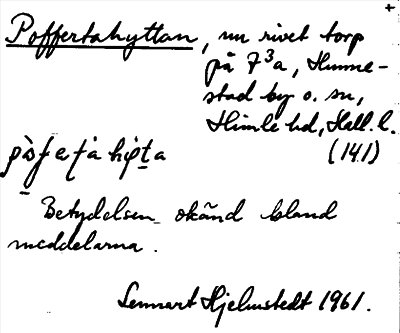 Poffertahyttan, nu rivet torp
på 7³a, Humme-
stad by o. sn,
Himle hd, Hall. l.
(141)
Betydelsen okänd bland
meddelarna.
Lennart Hjelmstedt 1961.